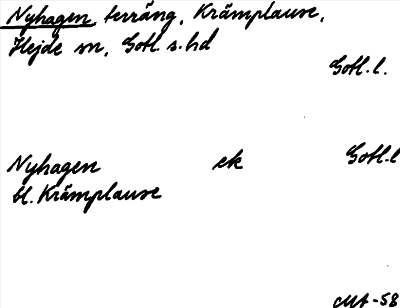 Nyhagen, terräng, Krämplause,
Hejde sn, Gotl. s. hd
Gotl. l.
Nyhagen ek Gotl. l
bl. Krämplause
MA-58